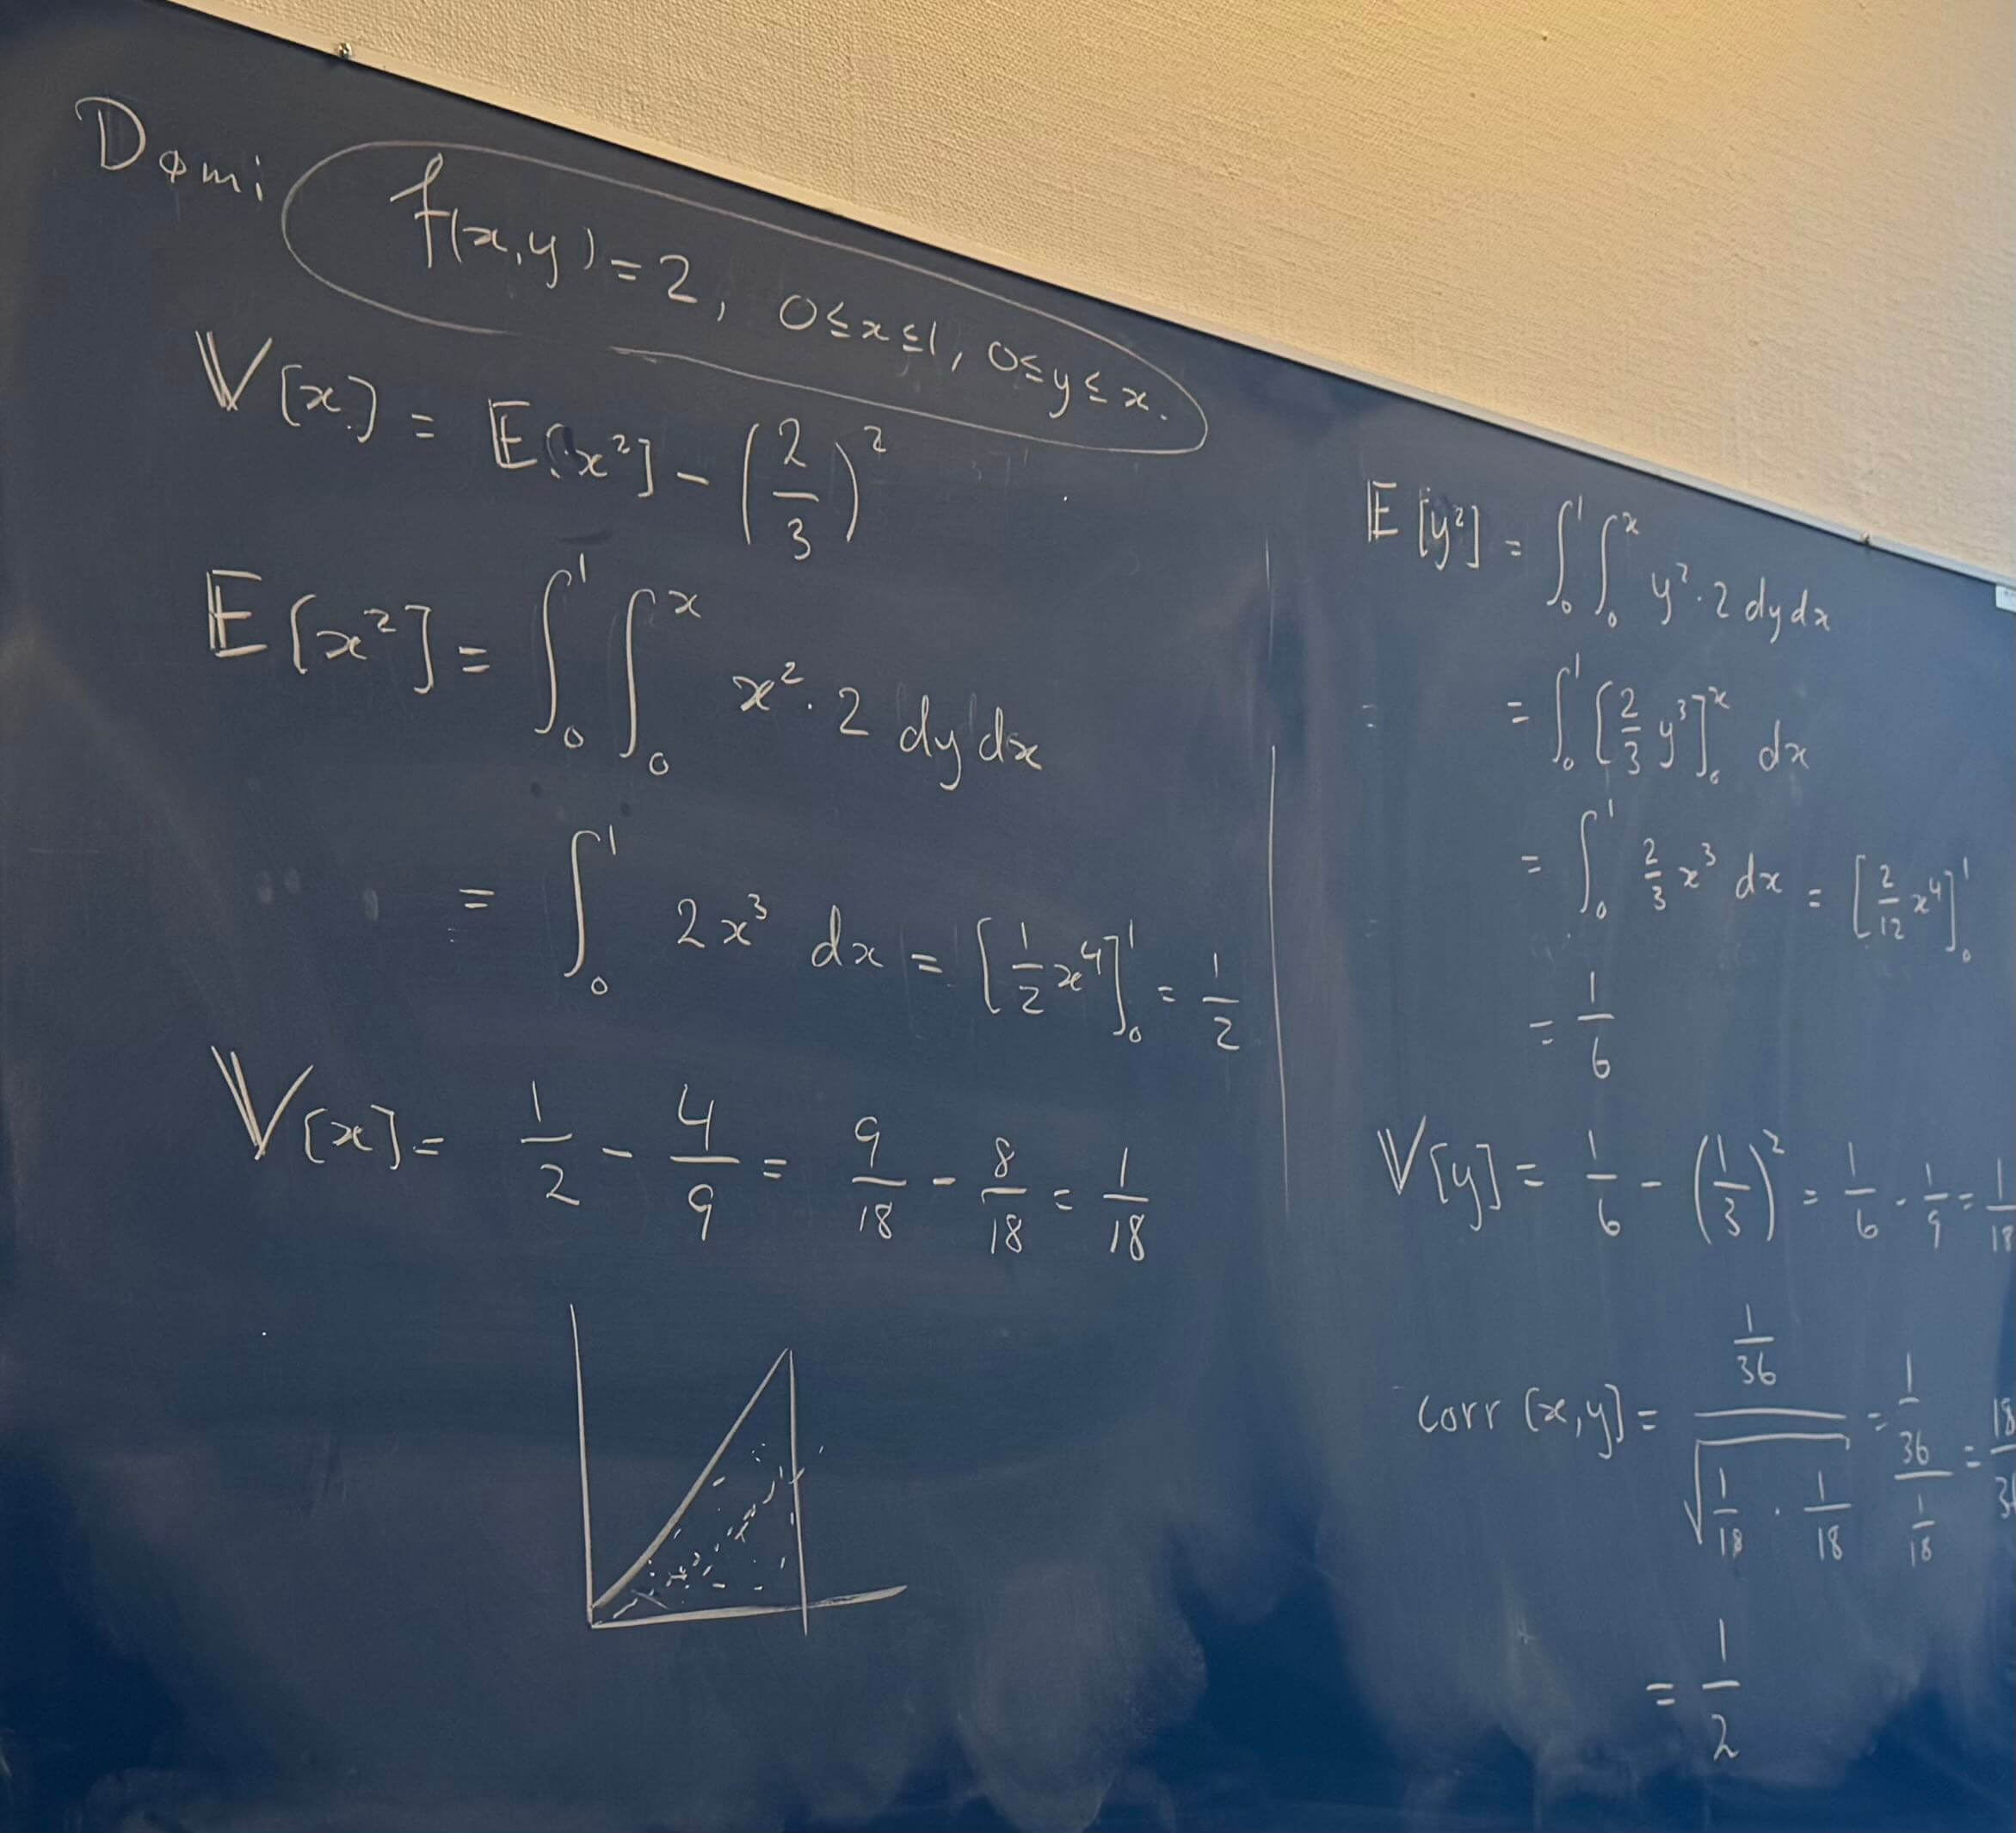 Dømi f(x,y) = 2, 0 ≤ x ≤ 1, 0 ≤ y ≤ x.
𝕍[x] = 𝔼[x²] - (2/3)²
𝔼[x²] = ∫₀¹ ∫₀ˣ x² · 2 dy dx
= ∫₀¹ 2x³ dx = [1/2 x⁴]₀¹ = 1/2
𝕍[x] = 1/2 - 4/9 = 9/18 - 8/18 = 1/18
𝔼[y²] = ∫₀¹ ∫₀ˣ y² · 2 dy dx
= ∫₀¹ [2/3 y³]₀ˣ dx
= ∫₀¹ 2/3 x³ dx = [2/12 x⁴]₀¹
= 1/6
𝕍[y] = 1/6 - (1/3)² = 1/6 - 1/9 = 1/18
corr[x,y] = (1/36)/√(1/18 · 1/18) = (1/36)/(1/18) = 18/3
= 1/2